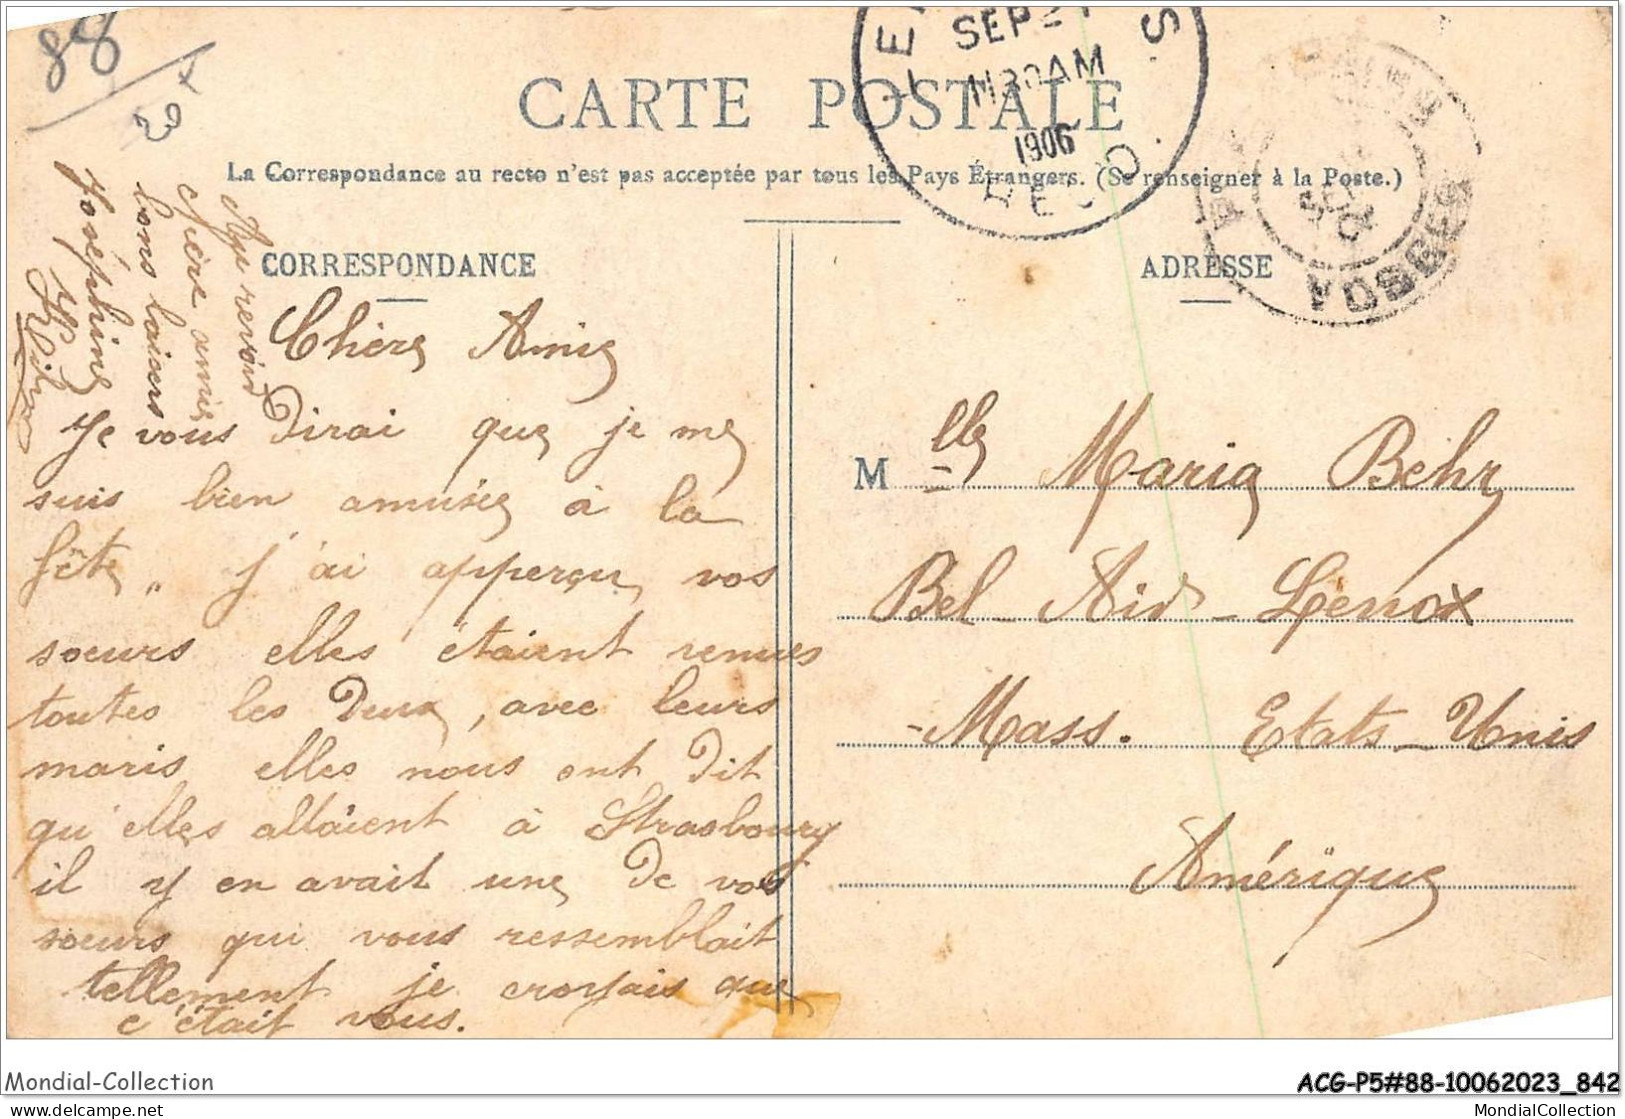 88
CARTE POSTALE
La Correspondance au recto n'est pas acceptée par tous les Pays Étrangers. (Se renseigner à la Poste.)
SEP 21
11 30 AM
1906
REC'D.
VOSGES
CORRESPONDANCE
ADRESSE
Chère Amie
Je vous dirai que je me
suis bien amusée à la
fête, j'ai apperçu vos
soeurs elles étaient venues
toutes les deux, avec leurs
maris elles nous ont dit
qu'elles allaient à Strasbourg
il y en avait une de vos
soeurs qui vous ressemblait
tellement je croyais que
c'était vous.
Au revoir
chère amie
bons baisers
Joséphine
M elle Maria Behr
Bel-Air-Lenox
-Mass. Etats-Unis
Amérique
Mondial-Collection
ACG-P5#88-10062023_842
https://www.delcampe.net
MondialCollection